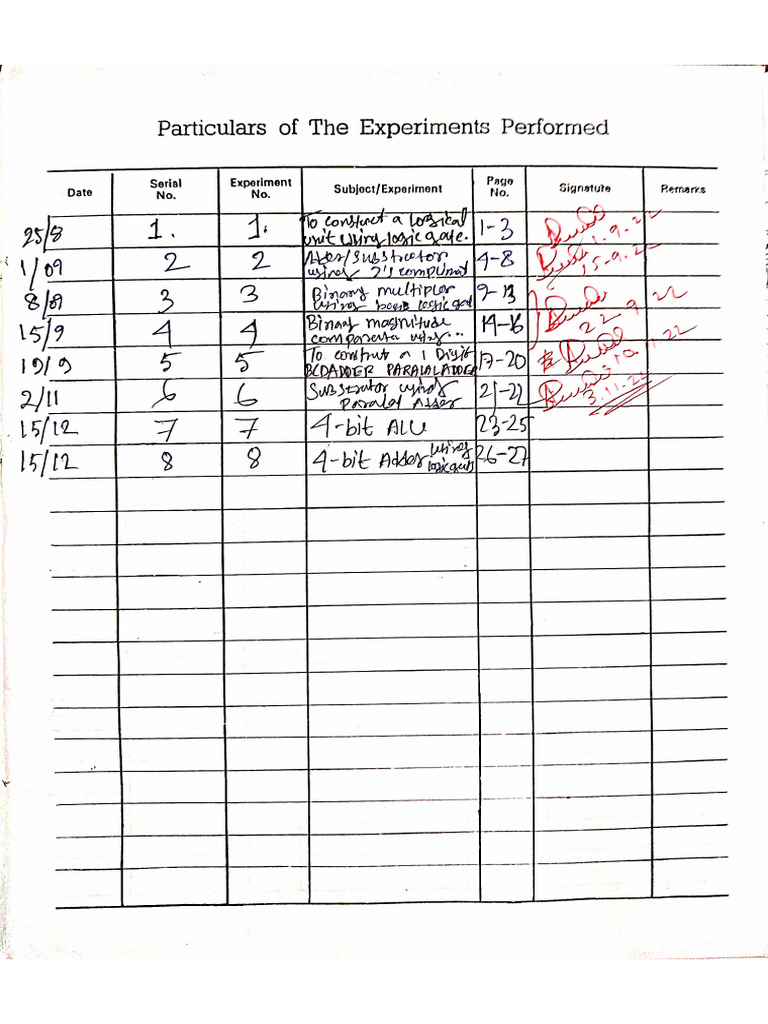 Particulars of The Experiments Performed
Date Serial No. Experiment No. Subject/Experiment Page No. Signature Remarks
25/8 1. 1. To construct a Logical unit using logic gate. 1-3 1.9.22
1/09 2 2 Adder/Substractor using 2's compliment 4-8 15-9-22
8/09 3 3 Binary multiplor using basic logic gat 9-13
15/9 4 4 Binary magnitude using... 14-16 22-9-22
19/9 5 5 To construt a 1 Digit BCDADDER PARALALADDER 17-20
2/11 6 6 Substrator using Paralal Adder 21-22 3.11.22
15/12 7 7 4-bit ALU 23-25
15/12 8 8 4-bit Adder using 26-27